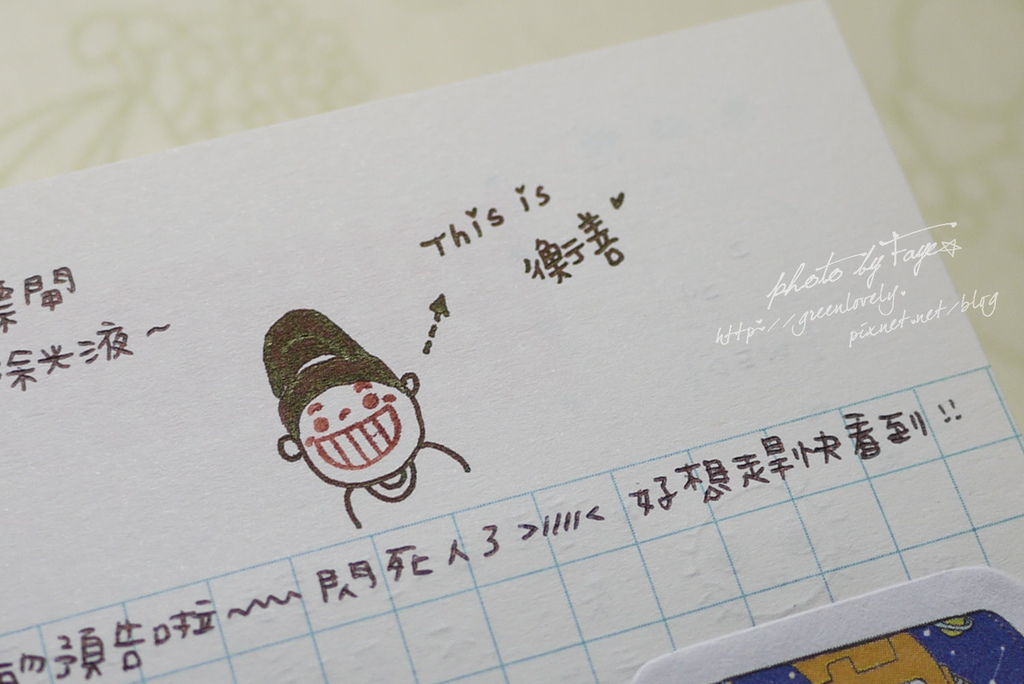 This is
衡善
photo by Faye
http://greenlovely.
pixnet.net/blog
開
液~
預告啦~~~ 閃死人了 >/////< 好想趕快看到!!